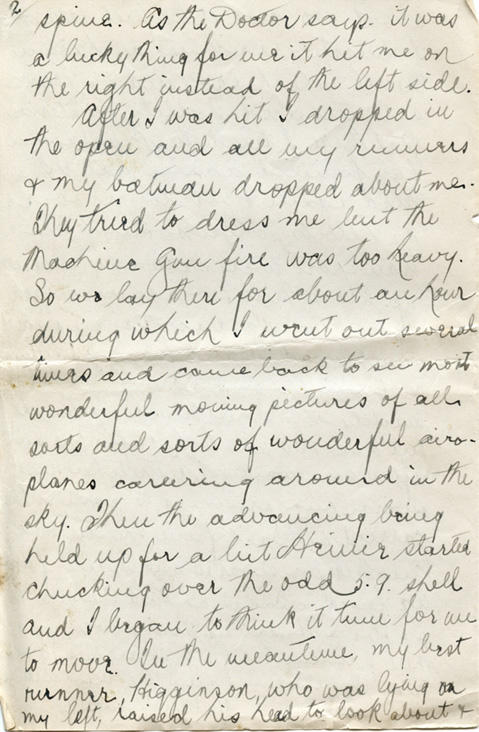 2
spine. As the Doctor says. it was
a lucky thing for me it hit me on
the right instead of the left side.
After I was hit I dropped in
the open and all my runners
& my batman dropped about me.
They tried to dress me but the
Machine Gun fire was too heavy.
So we lay there for about an hour
during which I went out several
times and came back to see most
wonderful moving pictures of all
sorts and sorts of wonderful airo-
planes careering around in the
sky. Then the advancing being
held up for a bit Heinie started
chucking over the odd 5.9. shell
and I began to think it time for me
to move. In the meantime, my best
runner, Higginson, who was lying on
my left, raised his head to look about &